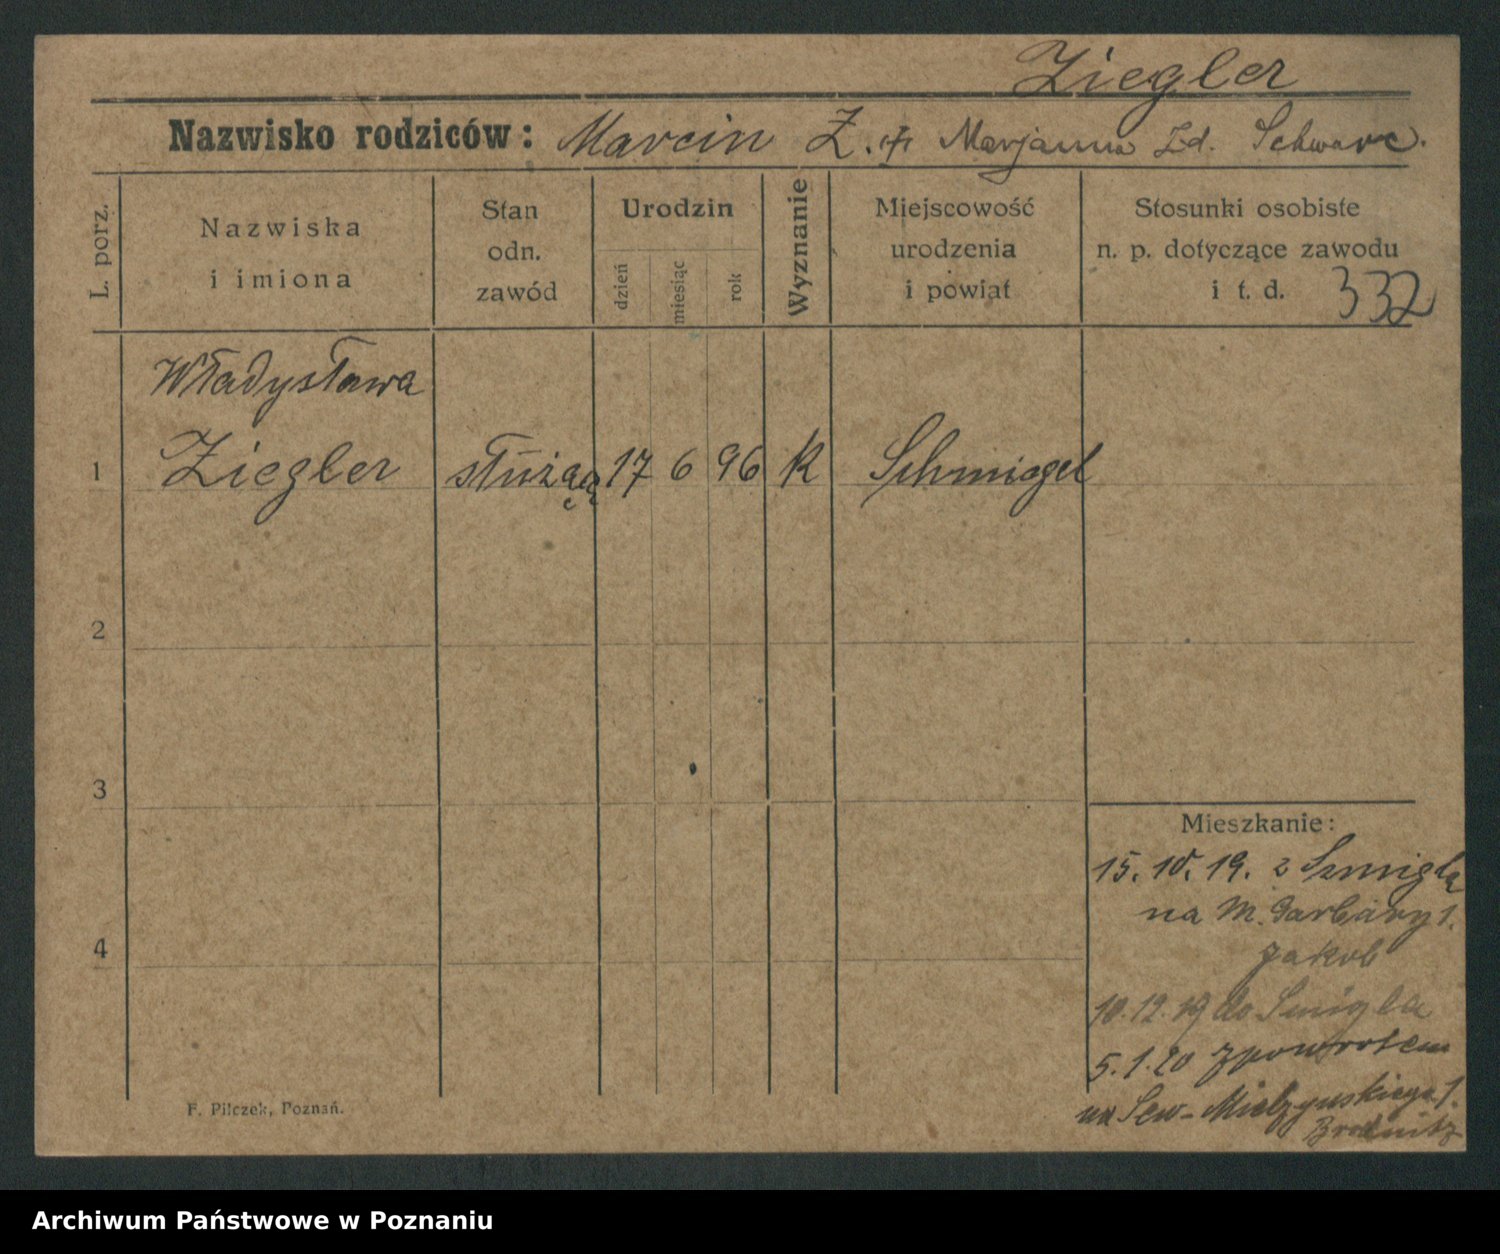 Ziegler
Nazwisko rodziców: Marcin Z. i Marjanna Zd. Schwarc.
L. porz.
Nazwiska
i imiona
Stan
odn.
zawód
Urodzin
dzień
miesiąc
rok
Wyznanie
Miejscowość
urodzenia
i powiat
Stosunki osobiste
n. p. dotyczące zawodu
i t. d.
332
Władysława
1 Ziegler służącą 17 6 96 k Schmiegel
2
3
4
Mieszkanie:
15. 10. 19. z Szmigla
na M. Garbary 1.
Jakob
10. 12. 19 do Smigla
5. 1. 20 zpowrotem
na Sew-Mielzynskiego 1.
Brodnitz
F. Pilczek, Poznań.
Archiwum Państwowe w Poznaniu